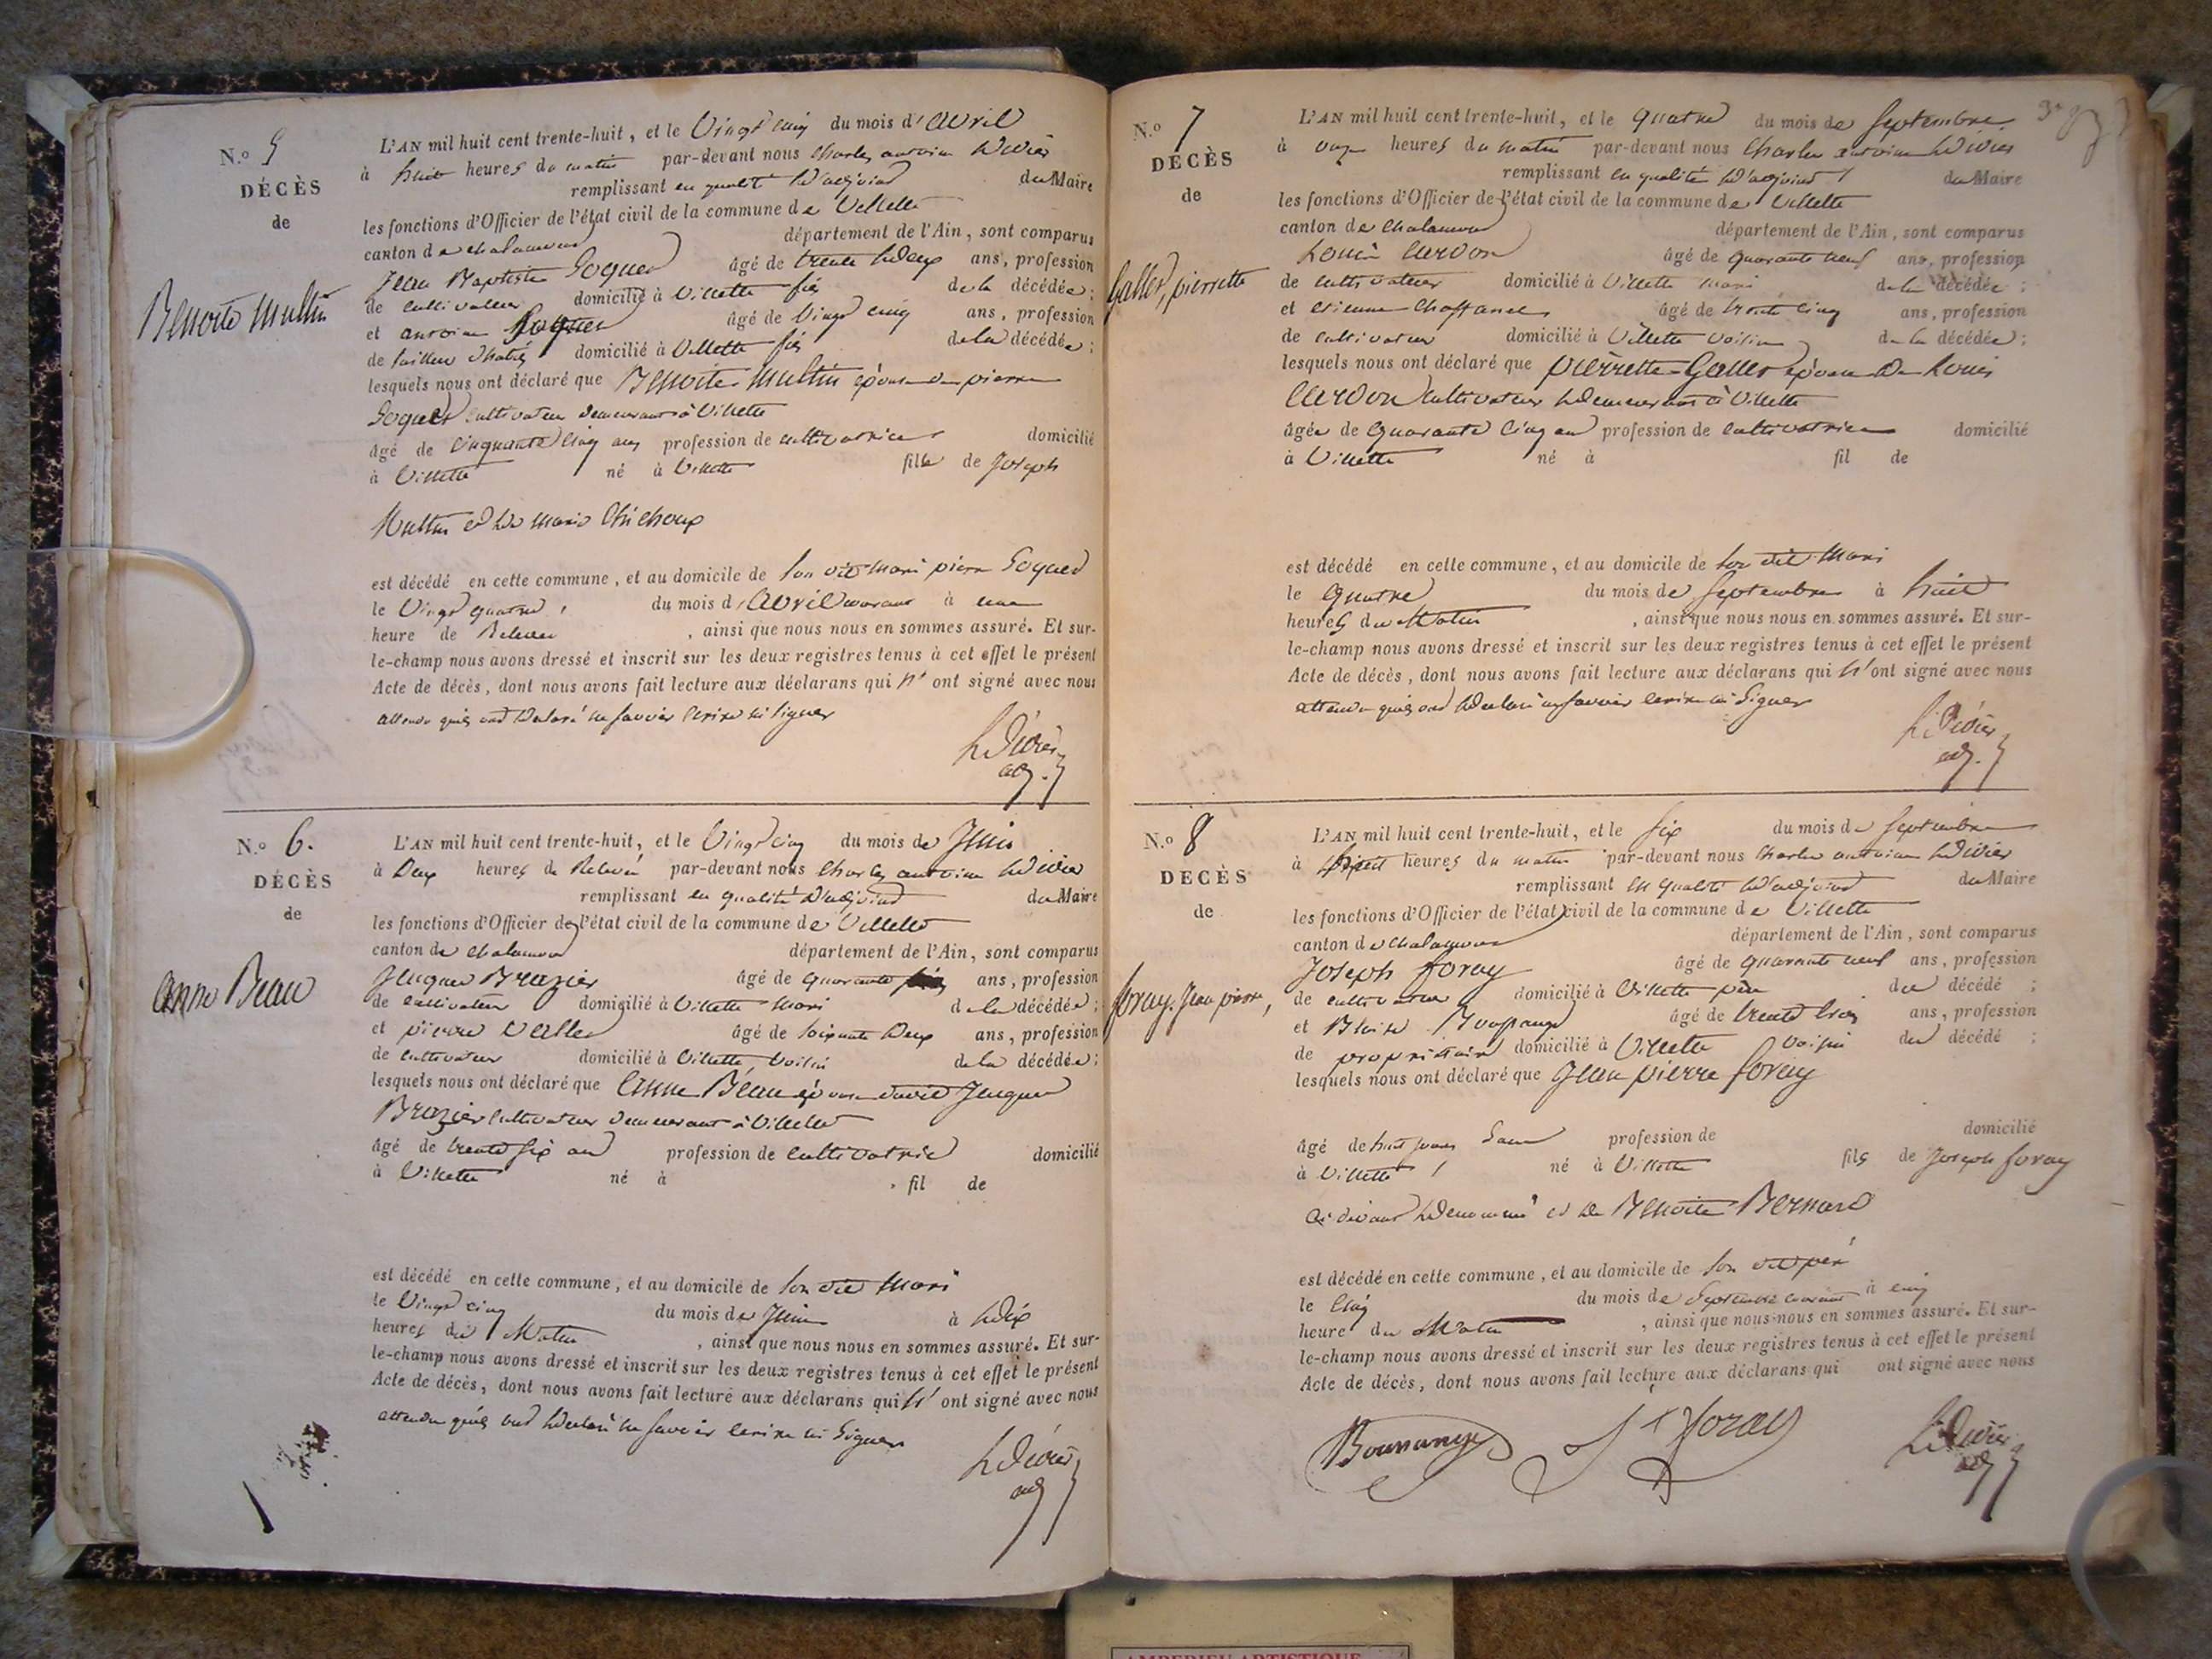 N.o 5
DÉCÈS
de
Benoite Multin
L'AN mil huit cent trente-huit, et le Vingt cinq du mois d'avril
à huit heures du matin par-devant nous Charles antoine
remplissant en qualité d'adjoint du Maire
les fonctions d'Officier de l'état civil de la commune de Villette
canton de chalamont département de l'Ain, sont comparus
Jean Baptiste Goguet âgé de trente deux ans, profession
de cultivateur domicilié à Villette fils de la décédée;
et antoine Goguet âgé de Vingt cinq ans, profession
de tailleur d'habits domicilié à Villette fils de la décédée;
lesquels nous ont déclaré que Benoite Multin épouse de pierre
Goguet cultivateur demeurant à Villette
âgé de Cinquante cinq ans profession de cultivatrice domicilié
à Villette né à Villette fille de Joseph
Multin et de marie
est décédé en cette commune, et au domicile de son dit mari pierre Goguet
le Vingt quatre du mois d'avril courant à une
heure de Relevée, ainsi que nous nous en sommes assuré. Et sur-
le-champ nous avons dressé et inscrit sur les deux registres tenus à cet effet le présent
Acte de décès, dont nous avons fait lecture aux déclarans qui n'ont signé avec nous
attendu qu'ils ont déclaré ne savoir écrire ni signer
adj.
N.o 6.
DÉCÈS
de
Anne Beau
L'AN mil huit cent trente-huit, et le Vingt cinq du mois de Juin
à Deux heures de Relevée par-devant nous Charles antoine
remplissant en qualité d'adjoint du Maire
les fonctions d'Officier de l'état civil de la commune de Villette
canton de chalamont département de l'Ain, sont comparus
Jacques Brazier âgé de quarante ans, profession
de cultivateur domicilié à Villette mari de la décédée;
et pierre âgé de soixante Deux ans, profession
de cultivateur domicilié à Villette, voisin de la décédée;
lesquels nous ont déclaré que Anne Beau épouse dudit Jacques
Brazier cultivateur demeurant à Villette
âgé de trente six ans profession de cultivatrice domicilié
à Villette né à fil de
est décédé en cette commune, et au domicile de son dit mari
le Vingt cinq du mois de Juin à dix
heures du Matin, ainsi que nous nous en sommes assuré. Et sur-
le-champ nous avons dressé et inscrit sur les deux registres tenus à cet effet le présent
Acte de décès, dont nous avons fait lecture aux déclarans qui n'ont signé avec nous
attendu qu'ils ont déclaré ne savoir écrire ni signer
adj
N.o 7
DÉCÈS
de
Gallet, pierrette
L'AN mil huit cent trente-huit, et le quatre du mois de Septembre
à onze heures du matin par-devant nous Charles antoine
remplissant en qualité d'adjoint du Maire
les fonctions d'Officier de l'état civil de la commune de Villette
canton de chalamont département de l'Ain, sont comparus
Louis Curdon âgé de quarante neuf ans, profession
de cultivateur domicilié à Villette mari de la décédée;
et etienne Chaffanel âgé de trente cinq ans, profession
de cultivateur domicilié à Villette voisin de la décédée;
lesquels nous ont déclaré que pierrette Gallet épouse de Louis
Curdon cultivateur demeurant à Villette
âgée de quarante cinq ans profession de cultivatrice domicilié
à Villette né à fil de
est décédé en cette commune, et au domicile de son dit mari
le quatre du mois de Septembre à huit
heures du Matin, ainsi que nous nous en sommes assuré. Et sur-
le-champ nous avons dressé et inscrit sur les deux registres tenus à cet effet le présent
Acte de décès, dont nous avons fait lecture aux déclarans qui n'ont signé avec nous
attendu qu'ils ont déclaré ne savoir écrire ni signer
adj.
N.o 8
DÉCÈS
de
foray, Jean pierre,
L'AN mil huit cent trente-huit, et le six du mois de Septembre
à heures du matin par-devant nous Charles antoine
remplissant en qualité d'adjoint du Maire
les fonctions d'Officier de l'état civil de la commune de Villette
canton de chalamont département de l'Ain, sont comparus
Joseph foray âgé de quarante neuf ans, profession
de cultivateur domicilié à Villette père du décédé;
et Blaise âgé de trente ans, profession
de propriétaire domicilié à Villette voisin du décédé;
lesquels nous ont déclaré que Jean pierre foray
âgé de huit jours profession de domicilié
à Villette né à Villette fils de Joseph foray
ci devant dénommé et de Benoite Bernard
est décédé en cette commune, et au domicile de son dit père
le cinq du mois de Septembre courant à cinq
heure du Matin, ainsi que nous nous en sommes assuré. Et sur-
le-champ nous avons dressé et inscrit sur les deux registres tenus à cet effet le présent
Acte de décès, dont nous avons fait lecture aux déclarans qui ont signé avec nous
foray
adj